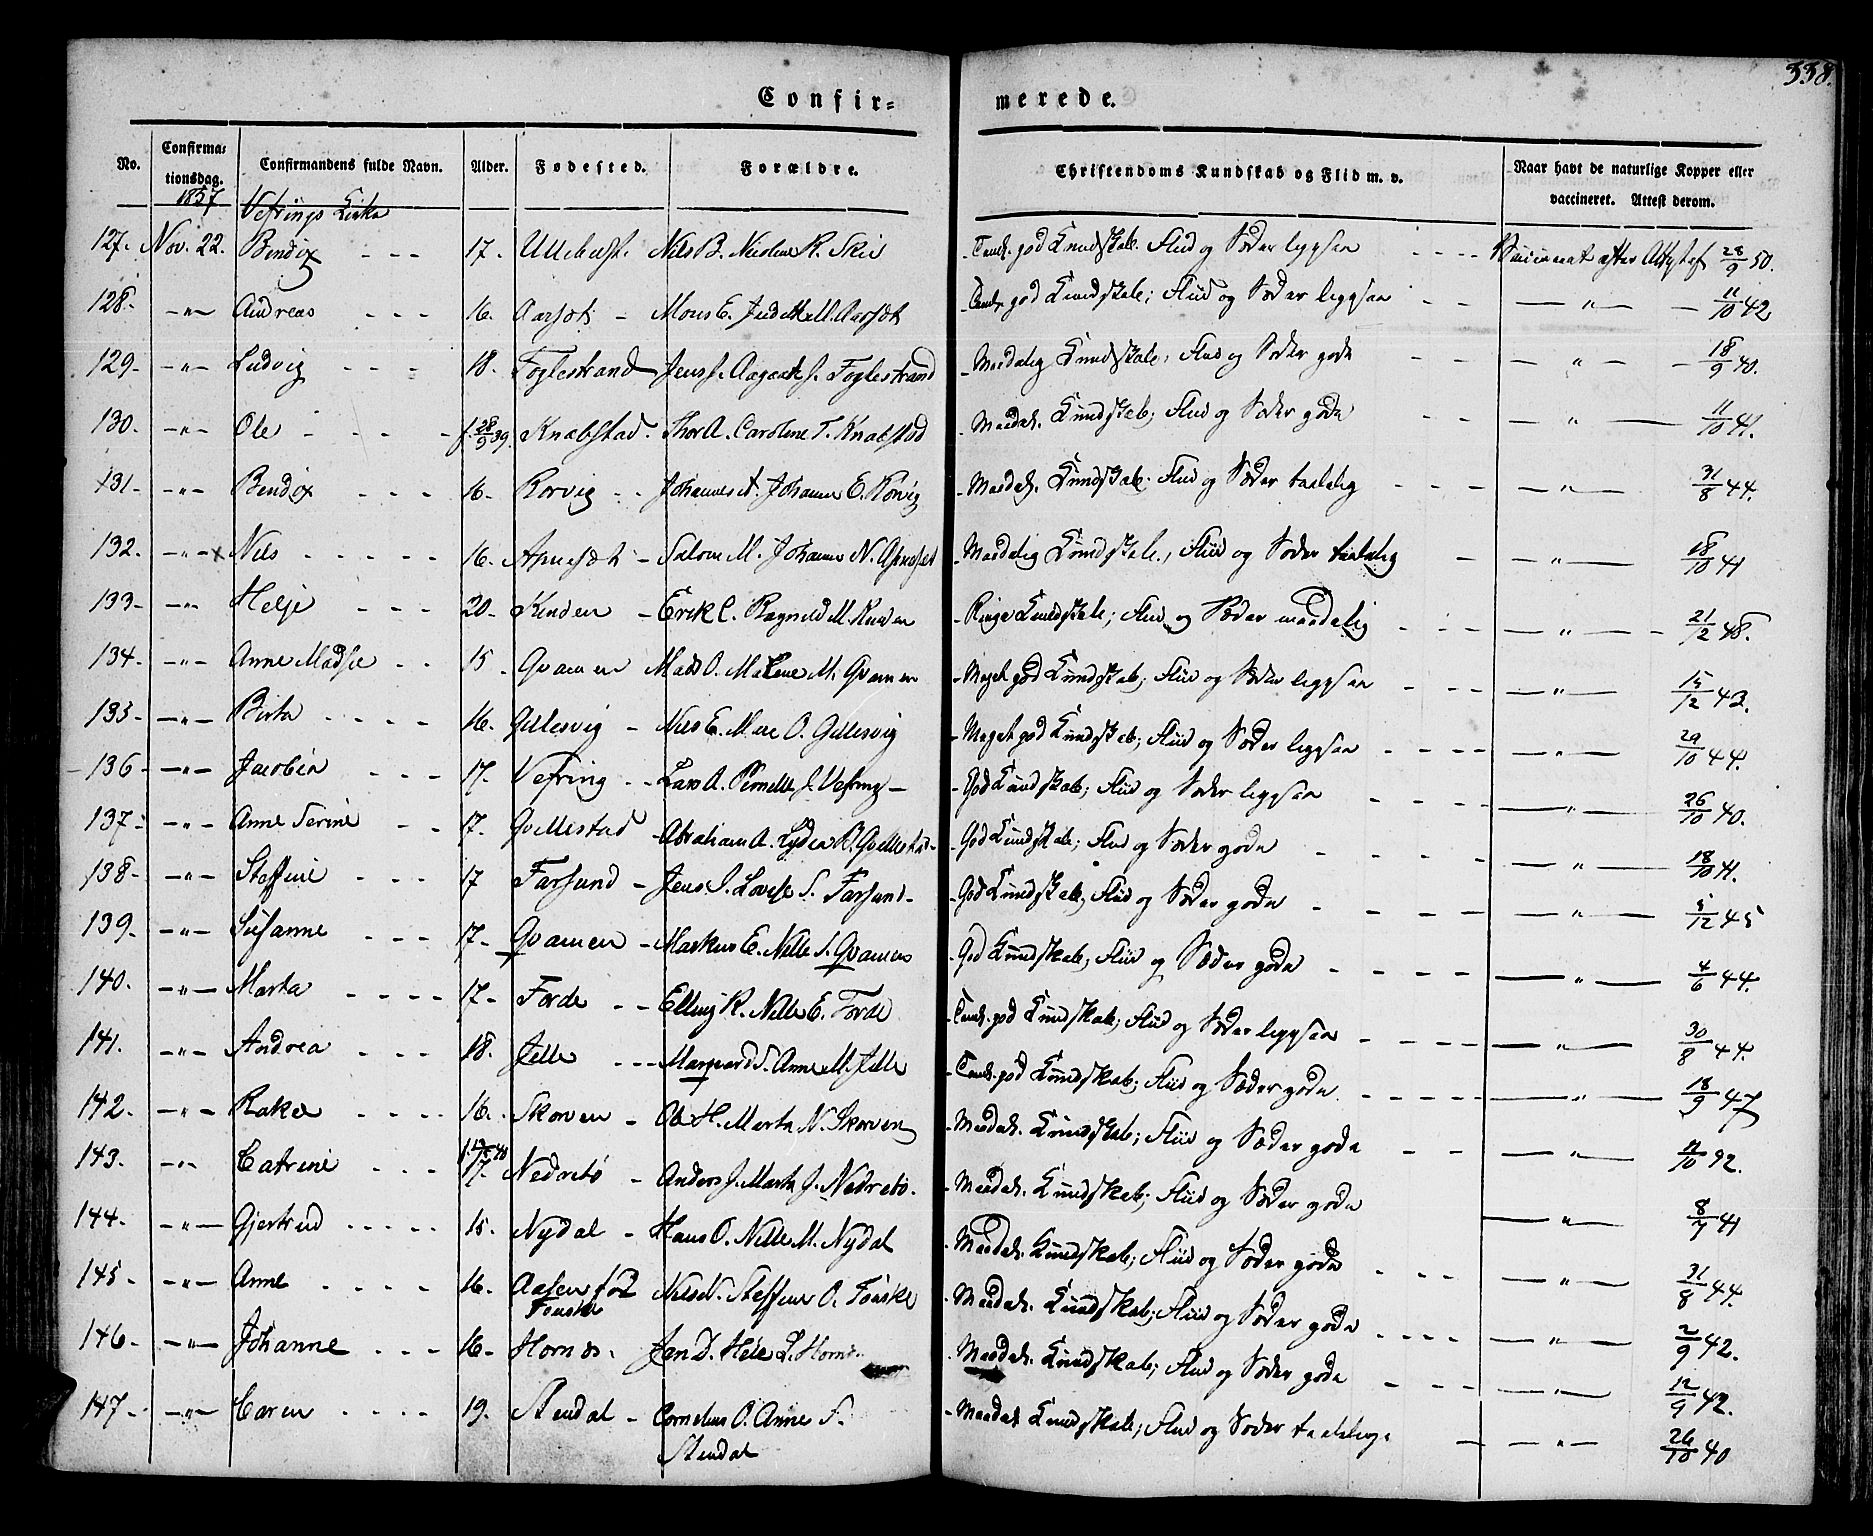 338.
Confir=
merede.
No.
Confirma:
tionsdag.
Confirmandens fulde Navn.
Alder.
Fødested.
Forældre.
Christendoms Kundskab og Flid m. v.
Naar havt de naturlige Kopper eller
vaccineret. Attest derom.
1857
Vefrings Kirke
127. Nov. 22. Bendix - - - 17. Nils B. R. god Kundskab. Flid og Sæder 28/9 50.
128. -"- Andreas - - - 16. Aarset - Mons E. M. Aarset god Kundskab; Flid og Sæder - " - 11/10 42
129. -"- Ludvig - - - 18. Foglestrand Jens J. Aagaat J. Foglestrand - Maadelig Kundskab; Flid og Sæder gode - " - 18/9 40.
130. -"- Ole - - - f. 28/9 39. Knabstad. Thor A. Caroline T. Knabstad - Maadel. Kundskab; Flid og Sæder gode - " - 11/10 41.
131. -"- Bendix - - - 16. Rorvig - - Johannes Johanne E. Rorvig - Maadel. Kundskab. Flid og Sæder taalelig - " - 31/8 44.
132. -"- x Nils - - - 16. - Salom M. Johanne N. - Maadelig Kundskab, Flid og Sæder taalelig - " - 18/10 41
133- -"- Helje - - - 20- Kinden - Erik C. Ragnild M. Kinden - Ringe Kundskab; Flid og Sæder maadelig - " - 21/12 48.
134- -"- Anne Madsie - - 15 - Qvamen Mads O. Malene M. Qvamen - Meget god Kundskab; Flid og Sæder - " - 15/12 43.
135- -"- Birta - - - 16. Gillesvig - Nils E. O. Gillesvig - Meget god Kundskab; Flid og Sæder - " - 29/10 44.
- 136- -"- Jacobia - - - 17. Vefring - - Lars A. Pernille J. Vefring - - God Kundskab; Flid og Sæder - " - 26/10 40.
137- -"- Anne Serine - - 17. Qvellestad - Abraham A. Lydia R. Qvellestad - God Kundskab; Flid og Sæder gode - " - 18/10 41.
138- -"- Steffine - - - 17 Farsund - Jens S. Lovise S. Farsund - - God Kundskab, Flid og Sæder gode - " - 5/12 45
139. -"- Susanne - - - 17- Qvamen - Markus E. Nille S. Qvamen - God Kundskab, Flid og Sæder gode - " - 4/6 44.
140. -"- Marta - - - 17- Forde - - Elling R. Nille E. Forde god Kundskab; Flid og Sæder - " - 30/8 44.
141. -"- Andrea - - - 18. Jelle - - - S. Anne M. Jelle god Kundskab; Flid og Sæder gode - " - 18/9 47
142. -"- Rakel - - - 16. Skorven - Ole H. Marta N. Skorven - Maadel. Kundskab; Flid og Sæder gode - " -
143. -"- Catrine - - - 17. Nedrebø - Anders J. Marta J. Nedrebø. - Maadel. Kundskab; Flid og Sæder gode - " - 8/7 41
144. -"- Gjertrud - - - 15. Nydal - Hans O. Nille M. Nydal - Maadel. Kundskab; Flid og Sæder gode - " - 31/8 44.
145- -"- Anne - - - 16. Aasen Nils N. Steffine O. - Maadel. Kundskab; Flid og Sæder gode - " - 2/9 42.
146- -"- Johanne - - - 16- Hornes. D. L. Hornes - Maadel. Kundskab; Flid og Sæder gode - " - 12/9 42.
147- -"- Caren - - - 19. Stendal - Cornelius O. Anne S. - Maadel Kundskab, Flid og Sæder - " - 26/10 40
Stendal